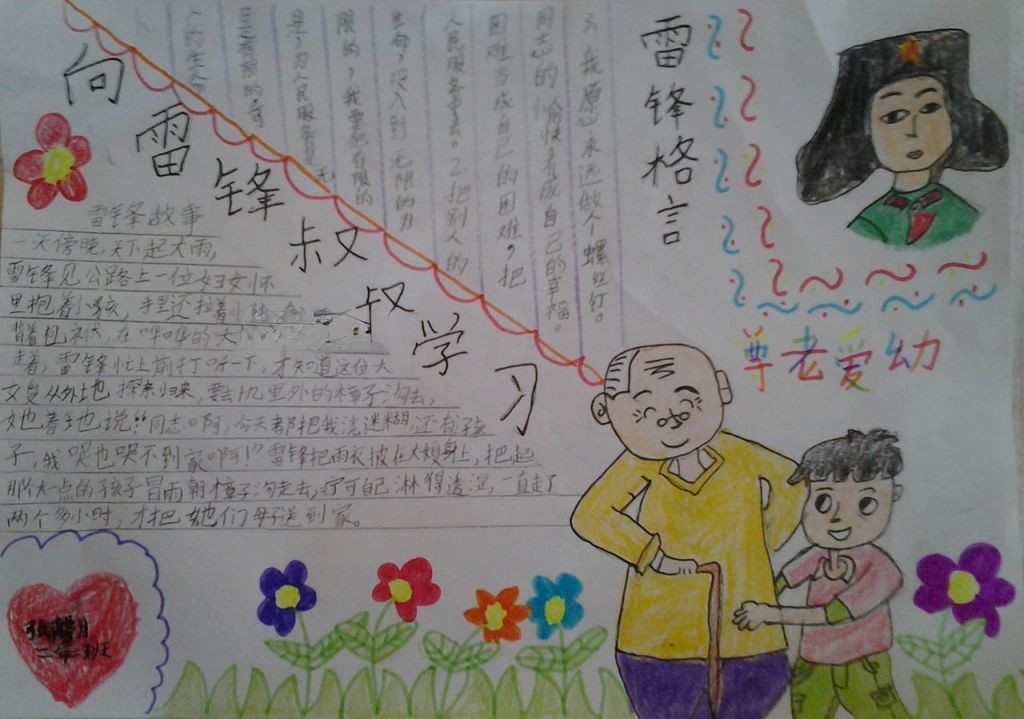 向雷锋叔叔学习
雷锋格言
3、我愿永远做个螺丝钉。
同志的愉快看成自己的幸福。
困难当成自己的困难，把
人民服务中去。2、把别人的
生命，投入到无限的为
限的，我要把有限的
是，为人民服务是无
是有限的可
人的生人
尊老爱幼
雷锋故事
一天傍晚，天下起大雨，
雷锋见公路上一位妇女怀
里抱着小孩，手里还拉着小孩
背着包袱，在哗哗的大
走着，雷锋忙上前打听一下，才知道这位大
文良从外地探亲归来，要去几里外的樟子沟去，
她着地说“同志啊，今天都把我浇迷糊，还有孩
子，我哭也哭不到家啊！”雷锋把雨衣披在大娘身上，把起
那大一点的孩子冒雨朝樟子沟走去，宁可自己淋得透湿，一直走了
两个多小时，才把她们母子送到家。
二年二班